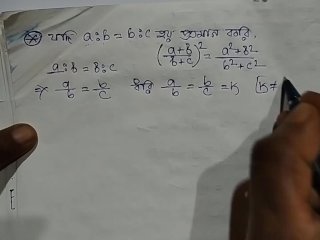 যদি a:b = b:c হয় প্রমাণ করি,
(a+b/b+c)² = a²+b²/b²+c²
a:b = b:c
⇒ a/b = b/c ধরি a/b = b/c = k [k≠